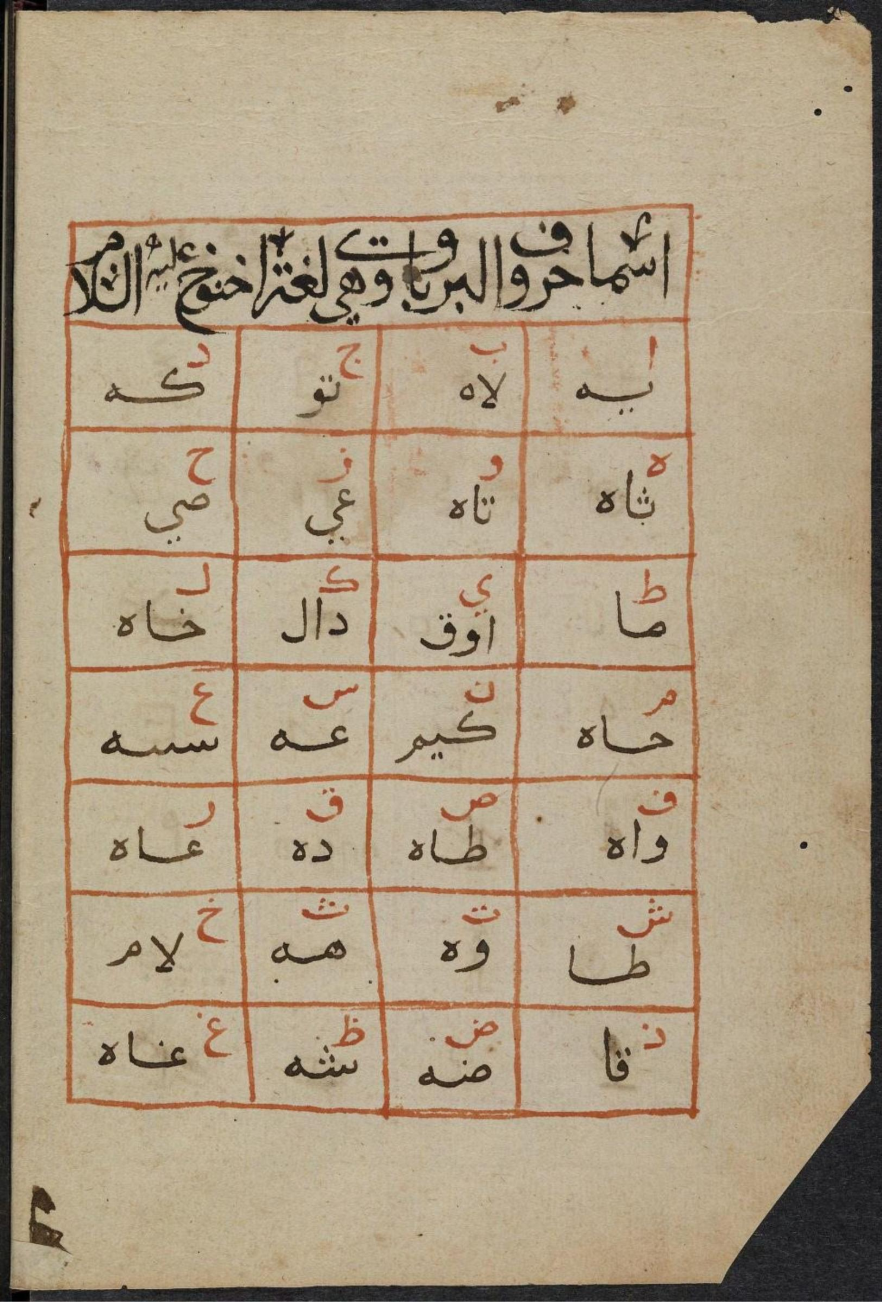 اسما حروف البرباوت وهي لغة اخنوخ عليه السلام
ا ب ج د
يه لاه تو كه
ه و ز ح
ثاه تاه عي صي
ط ي ك ل
صا اوق دال خاه
م ن س ع
حاه كيم عه سسه
ف ص ق ر
واه طاه ده عاه
ش ت ث خ
طا وه هه لام
ذ ض ظ غ
قا ضه شه غاه